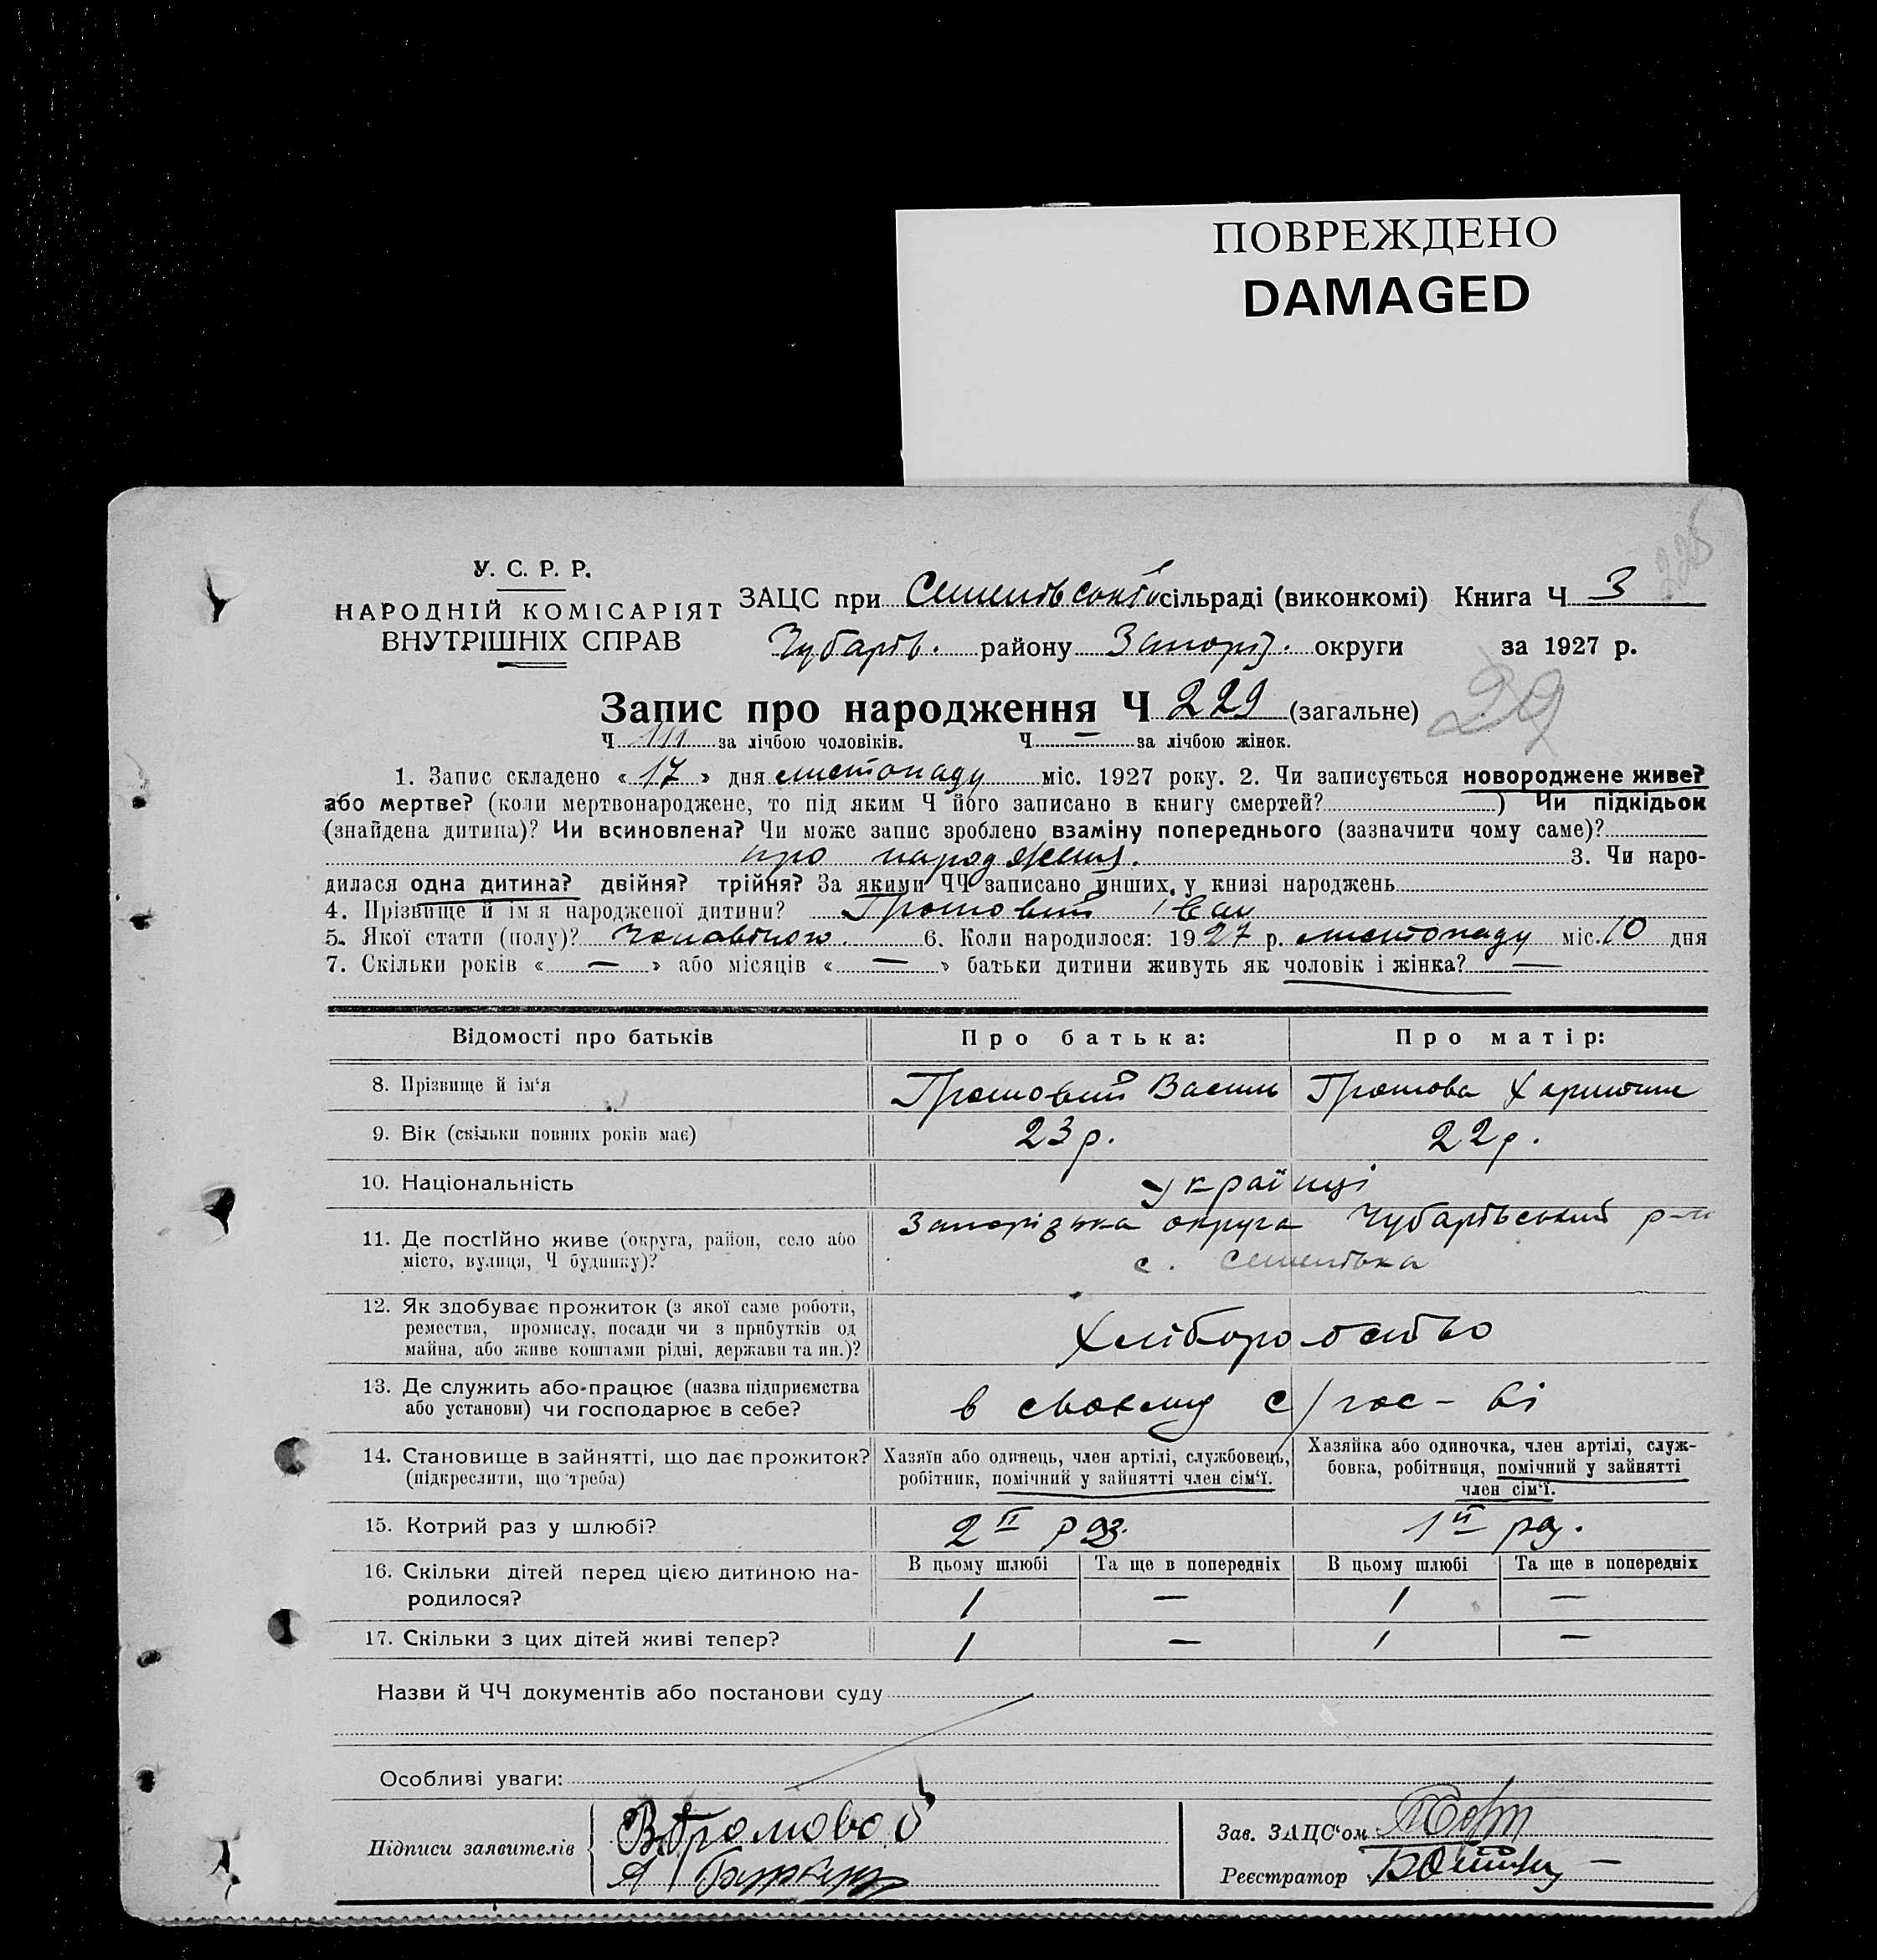 ПОВРЕЖДЕНО
DAMAGED
226
У. С. Р. Р.
НАРОДНІЙ КОМІСАРІЯТ
ВНУТРІШНІХ СПРАВ
ЗАЦС при сільраді (виконкомі) Книга Ч 3
Чубарів. району Запоріз. округи за 1927 р.
Запис про народження Ч 229 (загальне)
29
Ч 111 за лічбою чоловіків. Ч — за лічбою жінок.
1. Запис складено « 17 » дня листопаду міс. 1927 року. 2. Чи записується новороджене живе?
або мертве? (коли мертвонароджене, то під яким Ч його записано в книгу смертей? ) Чи підкідьок
(знайдена дитина)? Чи всиновлена? Чи може запис зроблено взаміну попереднього (зазначити чому саме)?
про народження. 3. Чи наро-
дилася одна дитина? двійня? трійня? За якими ЧЧ записано инших, у книзі народжень
4. Прізвище й ім'я народженої дитини? Громовий Іван
5. Якої стати (полу)? Чоловічою. 6. Коли народилося: 1927 р. листопаду міс. 10 дня
7. Скільки років « — » або місяців « — » батьки дитини живуть як чоловік і жінка? —
Відомості про батьків Про батька: Про матір:
8. Прізвище й ім'я Громовий Василь Громова Христина
9. Вік (скільки повних років має) 23 р. 22 р.
10. Національність Українці
11. Де постійно живе (округа, район, село або Запорізька округа Чубарівський р-н
місто, вулиця, Ч будинку)? с. Семенівка
12. Як здобуває прожиток (з якої саме роботи,
ремества, промислу, посади чи з прибутків од
майна, або живе коштами рідні, держави та ин.)? Хліборобство
13. Де служить або працює (назва підприємства
або установи) чи господарює в себе? в своєму с/гос-ві
14. Становище в зайнятті, що дає прожиток? Хазяїн або одинець, член артілі, службовець, Хазяйка або одиночка, член артілі, служ-
(підкреслити, що треба) робітник, помічний у зайнятті член сім'ї. бовка, робітниця, помічний у зайнятті
член сім'ї.
15. Котрий раз у шлюбі? 2 II раз. 1 й раз.
16. Скільки дітей перед цією дитиною на- В цьому шлюбі Та ще в попередніх В цьому шлюбі Та ще в попередніх
родилося? 1 — 1 —
17. Скільки з цих дітей живі тепер? 1 — 1 —
Назви й ЧЧ документів або постанови суду
Особливі уваги:
Підписи заявителів В Громовой
Зав. ЗАЦС'ом
Реєстратор